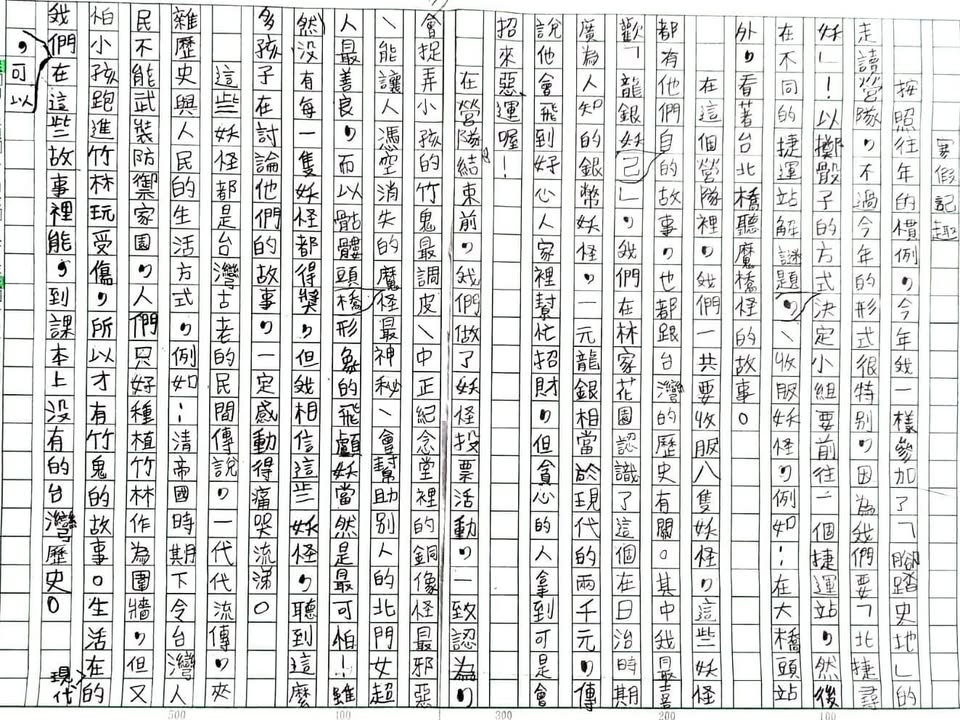 寒假記趣
按照往年的慣例,今年我一樣參加了「腳踏史地」的
走讀營隊,不過今年的形式很特別,因為我們要「北捷尋
妖」!以擲骰子的方式決定小組要前往一個捷運站,然後
在不同的捷運站解謎題、收服妖怪,例如:在大橋頭站
外,看著台北橋聽魔橋怪的故事。
在這個營隊裡,我們一共要收服八隻妖怪,這些妖怪
都有他們自己的故事,也都跟台灣的歷史有關。其中我最喜
歡「龍銀妖」,我們在林家花園認識了這個在日治時期
廣為人知的銀幣妖怪,一元龍銀相當於現代的兩千元,傳
說他會飛到好心人家裡幫忙招財,但貪心的人拿到可是會
招來惡運喔!
在營隊結束前,我們做了妖怪投票活動,一致認為,
會捉弄小孩的竹鬼最調皮、中正紀念堂裡的銅像怪最邪惡
、能讓人憑空消失的魔橋怪最神秘、會幫助別人的北門女超
人最善良,而以骷髏頭形象的飛顱妖當然是最可怕!雖
然沒有每一隻妖怪都得獎,但我相信這些妖怪,聽到這麼
多孩子在討論他們的故事,一定感動得痛哭流涕。
這些妖怪都是台灣古老的民間傳說,一代代流傳,夾
雜歷史與人民的生活方式,例如:清帝國時期下令台灣人
民不能武裝防禦家園,人們只好種植竹林作為圍牆,但又
怕小孩跑進竹林玩受傷,所以才有竹鬼的故事。生活在現代的
我們,可以在這些故事裡能,到課本上沒有的台灣歷史。
100
200
300
400
500